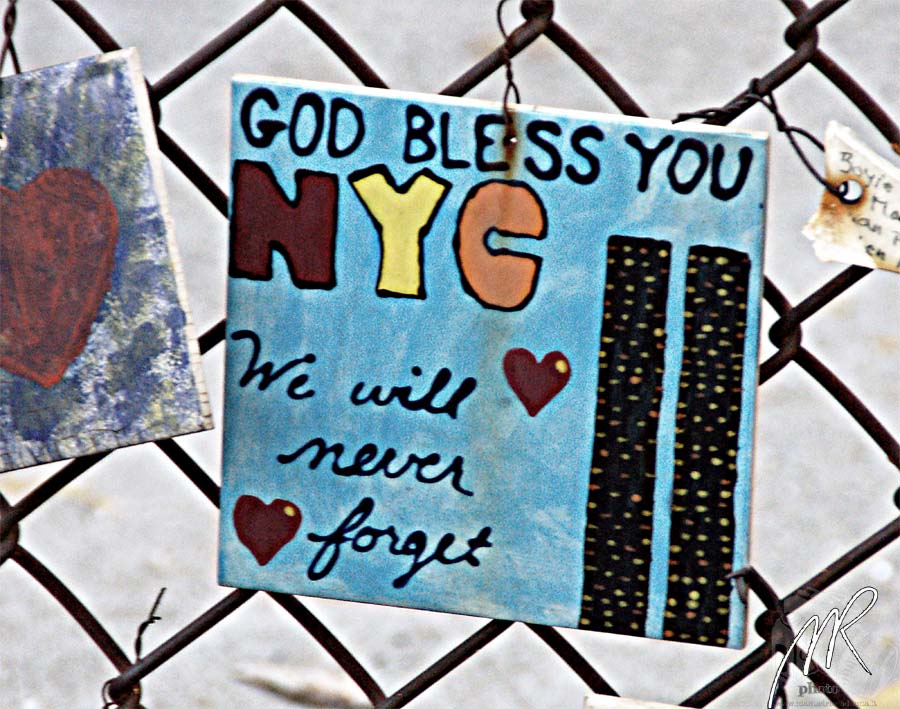 GOD BLESS YOU
NYC
We will
never
forget
Boyle
MR
photo